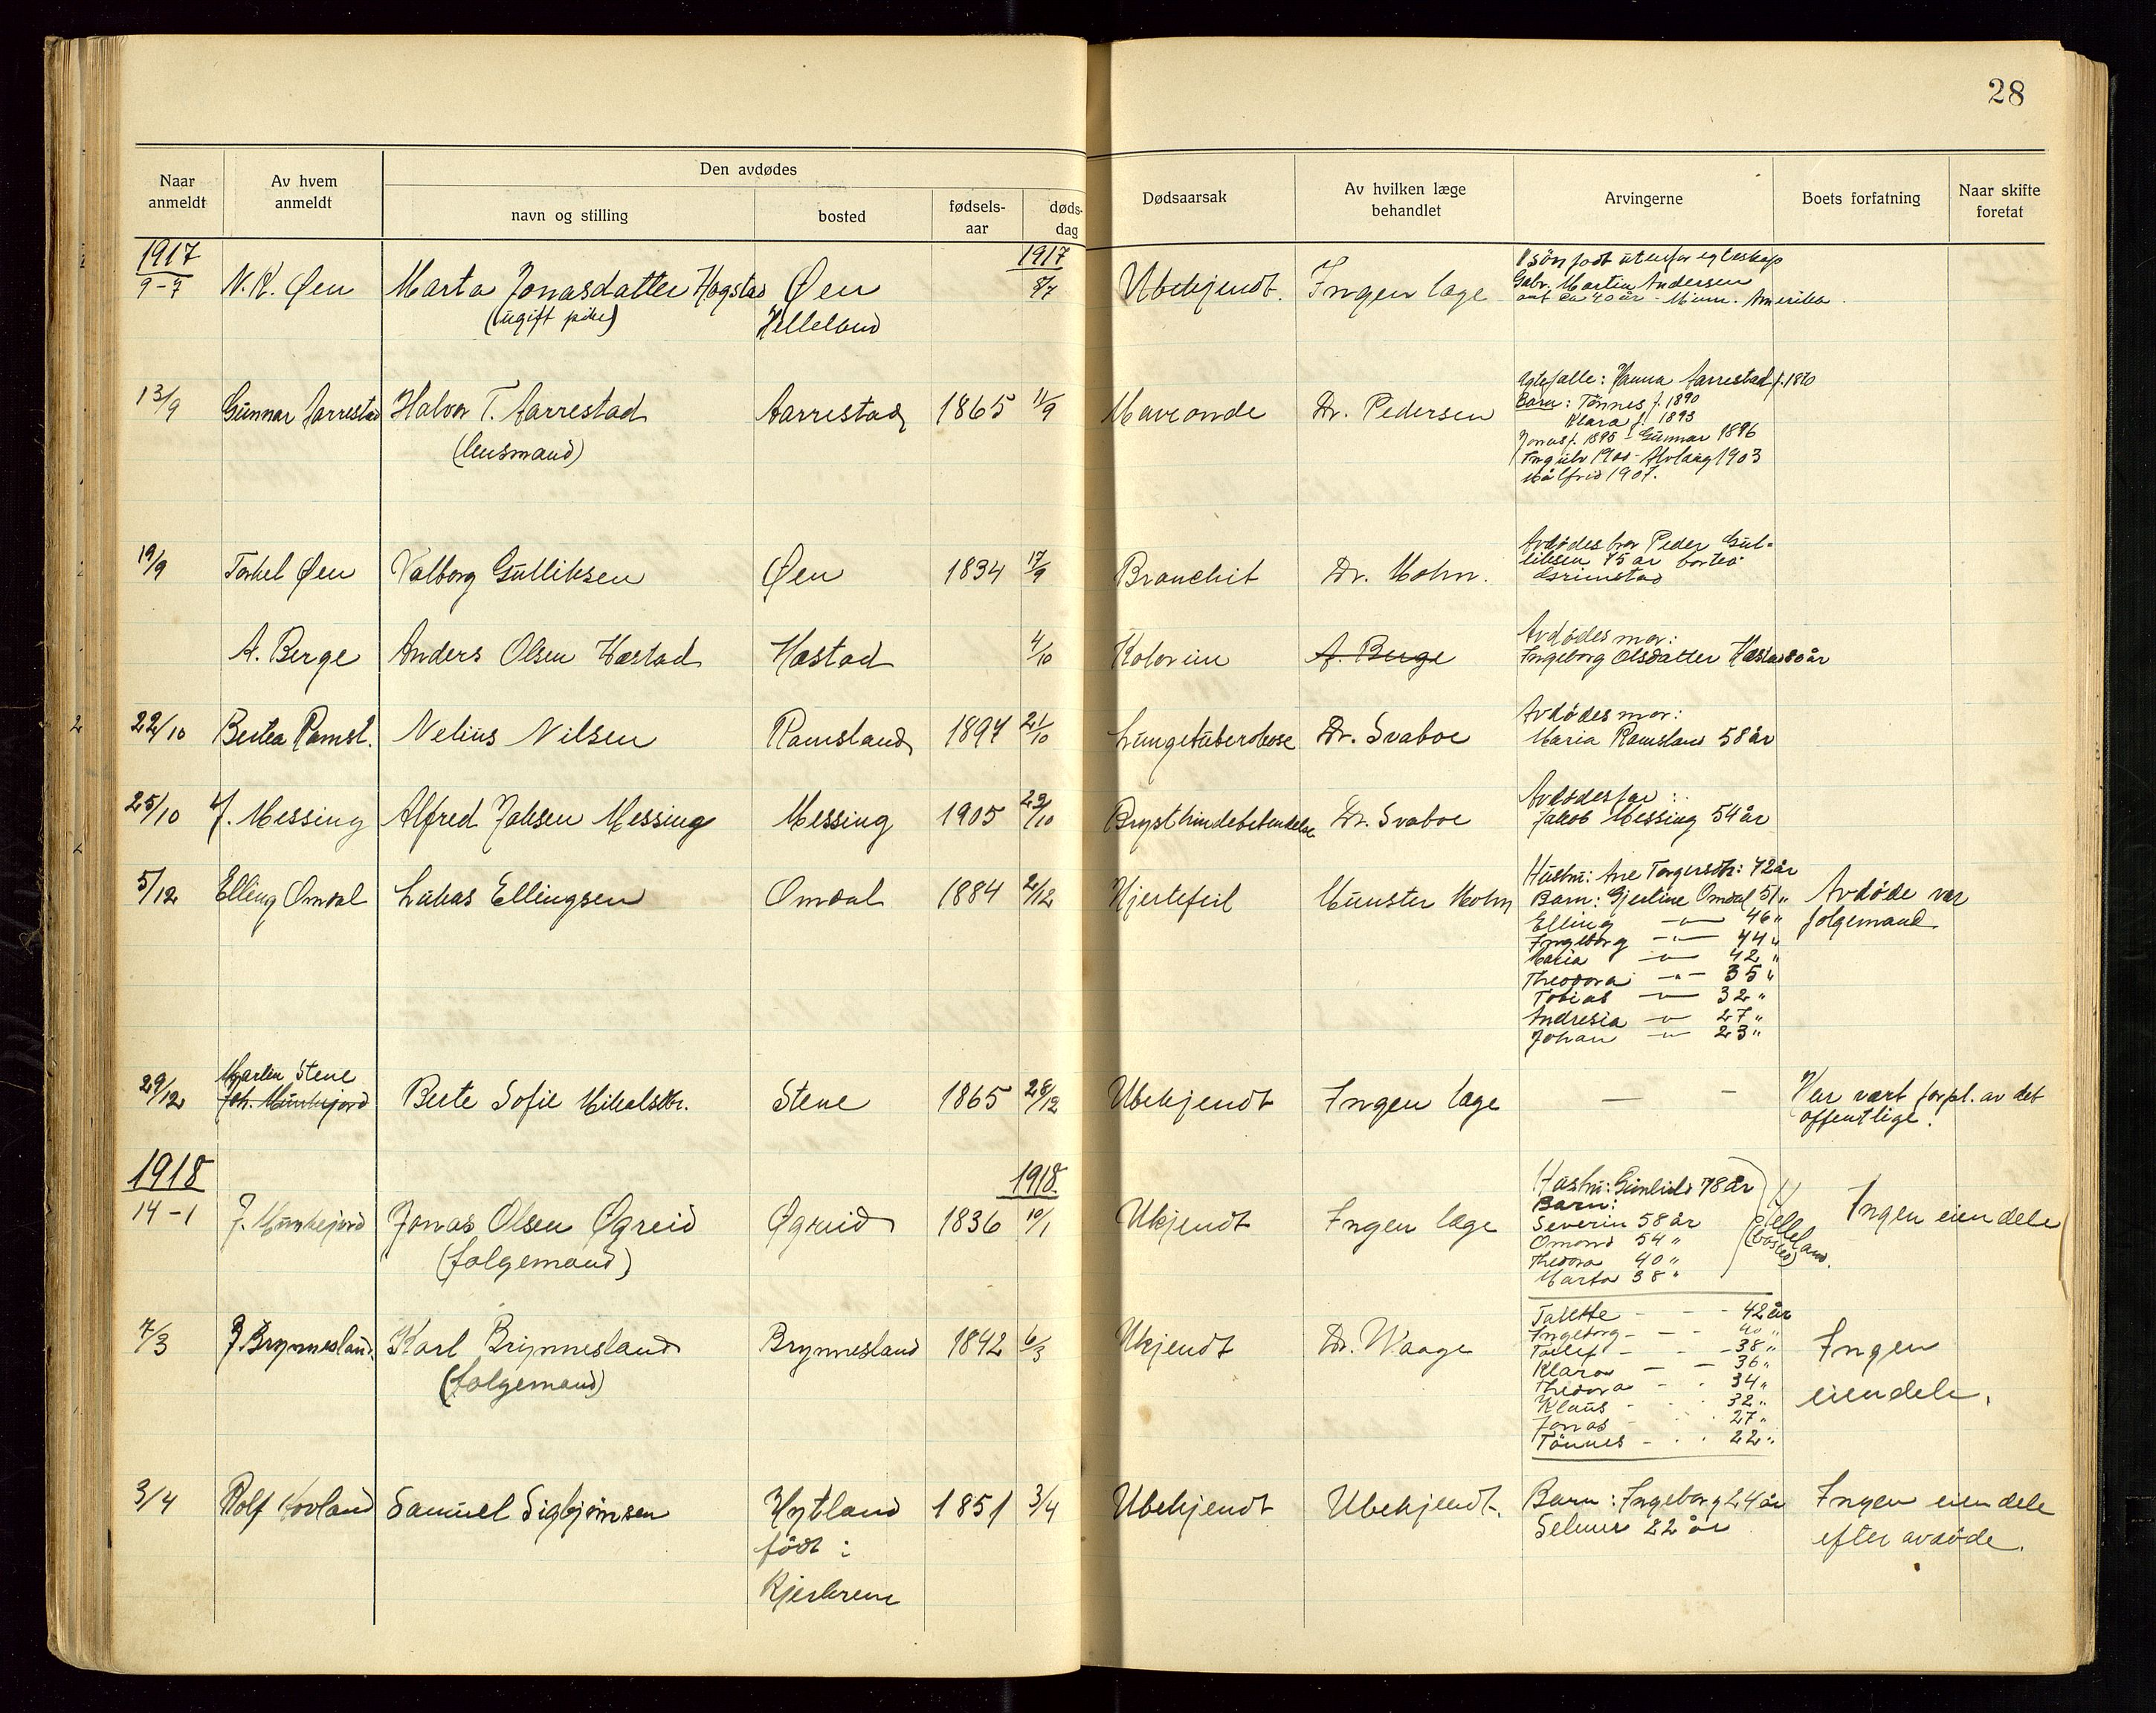 28
Naar anmeldt
Av hvem anmeldt
Den avdødes
navn og stilling
bosted
fødsels-aar
døds-dag
Dødsaarsak
Av hvilken læge behandlet
Arvingerne
Boets forfatning
Naar skifte foretat
1917
1917
9-7 N. K. Øen Marta Jonasdatter Hagstad Øen 8/7 Ubekjendt. Ingen læge
(ugift pike) Helleland
1 sön födt utenfor egteskap
Gabr. Martin Andersen
ant ca 40 år - Minn. Amerika.
13/9 Gunnar Aarrestad Halvor T. Aarrestad Aarrestad 1865 11/9 Maveonde Dr. Pedersen
(lensmand)
Egtefælle: Hanna Aarrestad f. 1870
Barn: Tönnes f. 1890
Klara f. 1893
Jonas f. 1895 - Gunnar 1896
Ingulv 1900 - Alvlaug 1903
Målfrid 1907.
19/9 Torkel Øen Valborg Gulliksen Øen 1834 17/9 Bronchit Dr. Mohn.
Avdödes bror Peder Gul-
liksen 75 år bosted
Grimstad
A. Berge Anders Olsen Hæstad Hæstad 4/10 Kolorine A. Berge
Avdödes mor:
Ingeborg Olsdatter Hæstad 80 år
22/10 Bertea Ramsl. Nelius Nilsen Ramsland 1897 21/10 Lungetuberkose Dr. Svaboe
Avdödes mor:
Maria Ramsland 58 år
25/10 J. Messing Alfred Jaksen Messing Messing 1905 22/10 Brysthindebetendelse Dr. Svaboe
Avdödes far:
Jakob Messing 54 år
5/12 Elling Omdal Lukas Ellingsen Omdal 1884 2/12 Hjertefeil Munster Mohn
Hustru: Ane Torgersdtr: 72 år
Barn: Gjertine Omdal 51 "
Elling — " — 46 "
Ingeborg — " — 44 "
Maria — " — 42 "
Theodora — " — 35 "
Tobias — " — 32 "
Andresia — " — 27 "
Johan — " — 23 "
Avdöde var
folgemand
29/12 Martin Stene Berte Sofie Mikalsdtr. Stene 1865 28/12 Ubekjendt Ingen læge — —
Joh. Munkejord
Har vært forpl. av det
offentlige.
1918
1918.
14-1 J. Munkejord Jonas Olsen Øgreid Øgreid 1836 10/1 Ukjendt Ingen læge
(folgemand)
Hustru: Gunhild 78 år
Barn:
Severin 58 år
Omond 54 "
Theodora 40 "
Marta 38 "
Helleland.
(bosted)
Ingen eiendele
7/3 J. Brynnesland. Karl Brynnesland Brynnesland 1842 6/3 Ukjendt Dr. Waage
(folgemand)
Talette - - - 42 år
Ingeborg - - - 40 "
Tollef - - - 38 "
Klara - - 36 "
Theodora - - 34 "
Klaus - - 32 "
Jonas - - 27 "
Tönnes - - 22 "
Ingen
eiendele.
3/4 Rolf Hovland Samuel Sigbjörnsen Hytland 1851 3/4 Ubekjendt Ubekjendt.
födt:
Bjerkrem
Barn: Ingeborg 24 år
Selmer 22 år
Ingen eiendele
efter avdöde.